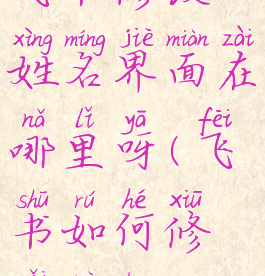 xìng míng jiè miàn zài
姓名界面在
nǎ lǐ yā fēi
哪里呀(飞
shū rú hé xiū
书如何修